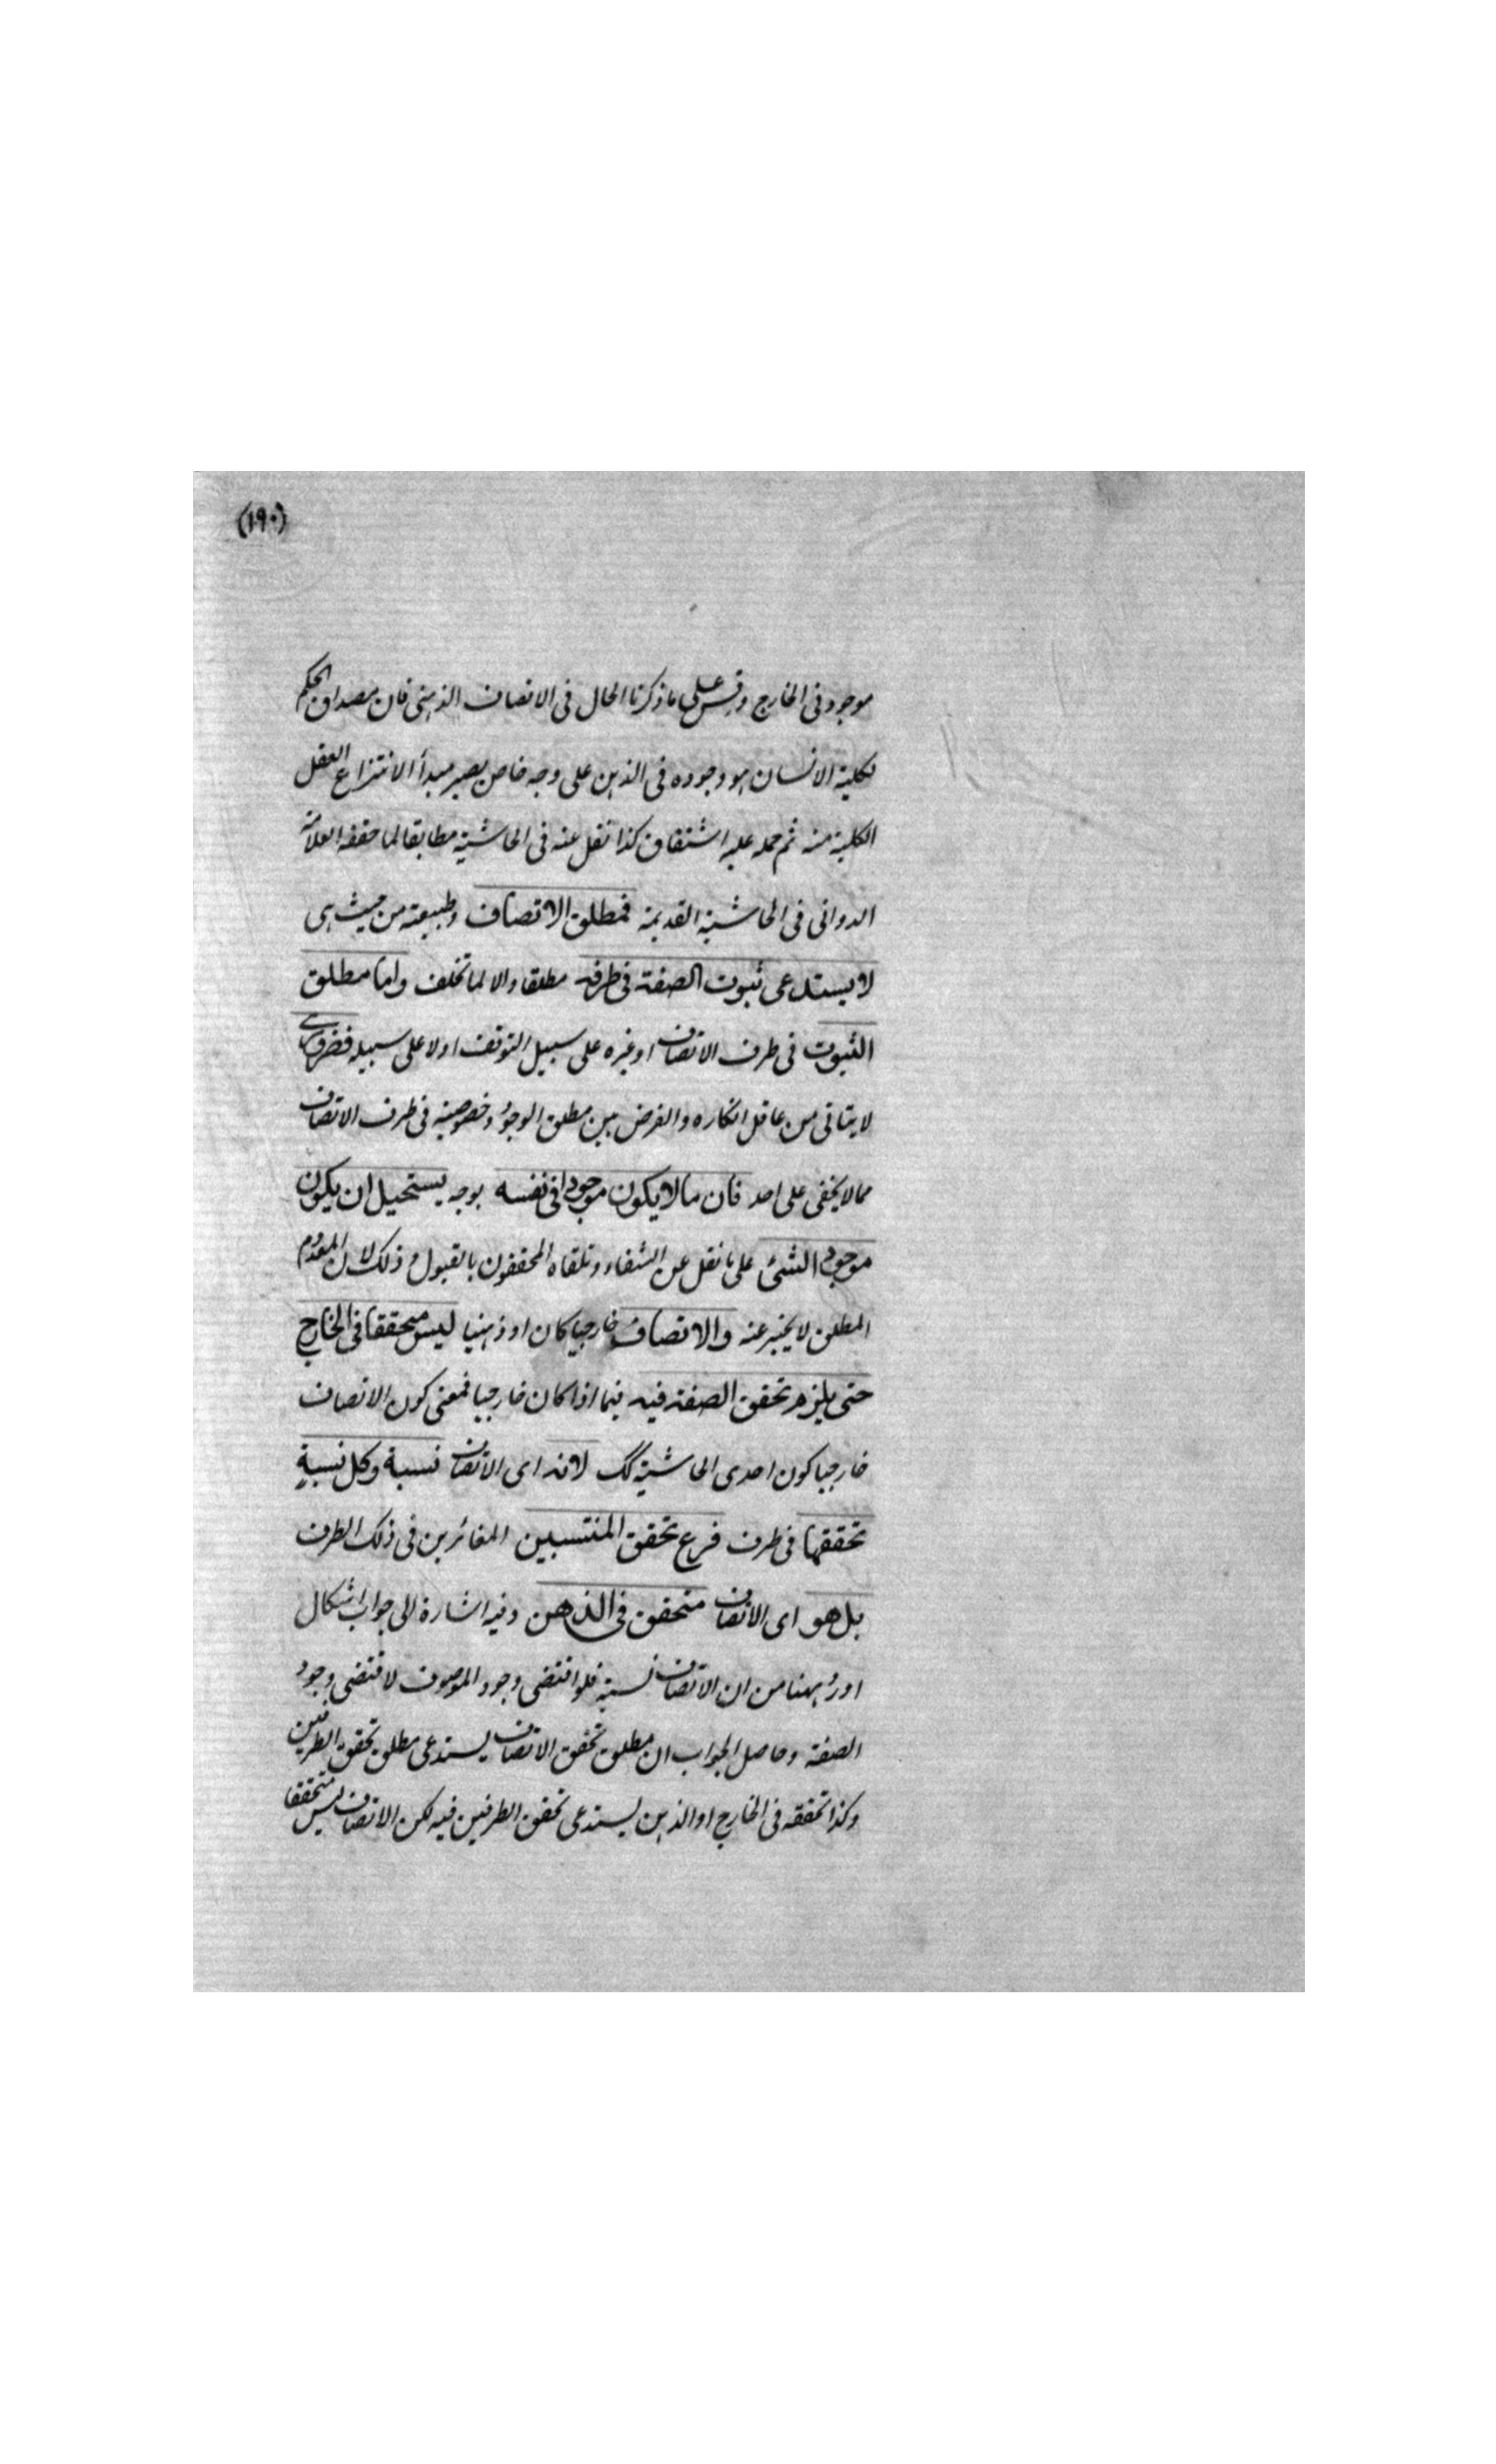 (١٩٠)
موجود فى الخارج وقس على ما ذكرنا الحال فى الاتصاف الذهنى فان مصداق الحكم
بكلية الانسان هو وجوده فى الذهن على وجه خاص يصير مبدأ الانتزاع العقل
الكلية منه ثم حمله عليه اشتقاق كذا نقل عنه فى الحاشية مطابقا لما حققه العلامة
الدوانى فى الحاشية القديمة فمطلق الاتصاف وطبيعته من حيث هى
لا يستدعى ثبوت الصفة فى ظرفه مطلقا والا لما تخلف واما مطلق
الثبوت فى ظرف الاتصاف او غيره على سبيل التوقف او لا على سبيله فضرورى
لا يتاتى من عاقل انكاره والفرق بين مطلق الوجود وخصوصيته فى ظرف الاتصاف
مما لا يخفى على احد فان ما لا يكون موجودا فى نفسه بوجه يستحيل ان يكون
موجود الشئ على ما نقل عن الشفاء وتلقاه المحققون بالقبول وذلك لان المعدوم
المطلق لا يخبر عنه والاتصاف خارجيا كان او ذهنيا ليس متحققا فى الخارج
حتى يلزم تحقق الصفة فيه فيما اذا كان خارجيا فمعنى كون الاتصاف
خارجيا كون احدى الحاشية كك لانه اى الاتصاف نسبة وكل نسبة
تحققها فى ظرف فرع تحقق المنتسبين المغائرين فى ذلك الظرف
بل هو اى الاتصاف متحقق فى الذهن وفيه اشارة الى جواب اشكال
اورد ههنا من ان الاتصاف نسبة فلو اقتضى وجود الموصوف لاقتضى وجود
الصفة وحاصل الجواب ان مطلق تحقق الاتصاف يستدعى مطلق تحقق الطرفين
وكذا تحققه فى الخارج او الذهن يستدعى تحقق الطرفين فيه لكن الاتصاف ليس متحققا